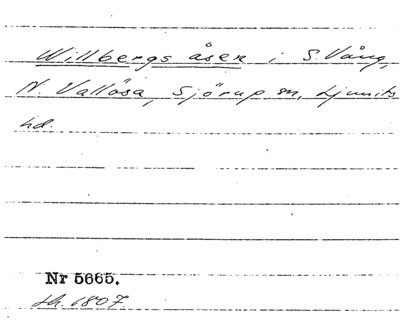 Willbergs åsen i S. Vång,
N. Vallösa, Sjörup m, Ljunits
hd.
Nr 5665.
sk. 1807